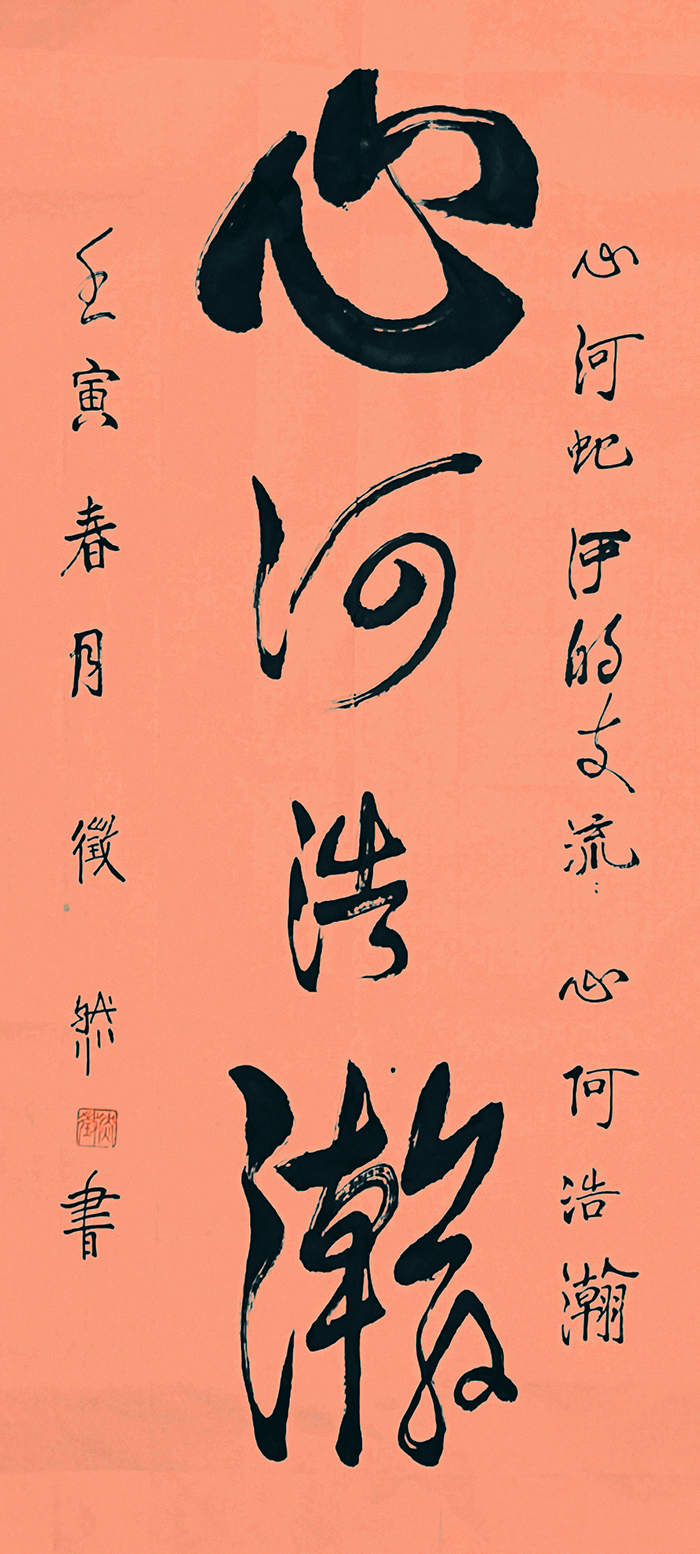 心河伊的支流：心何浩瀚
心河浩瀚
壬寅春月 徵然書